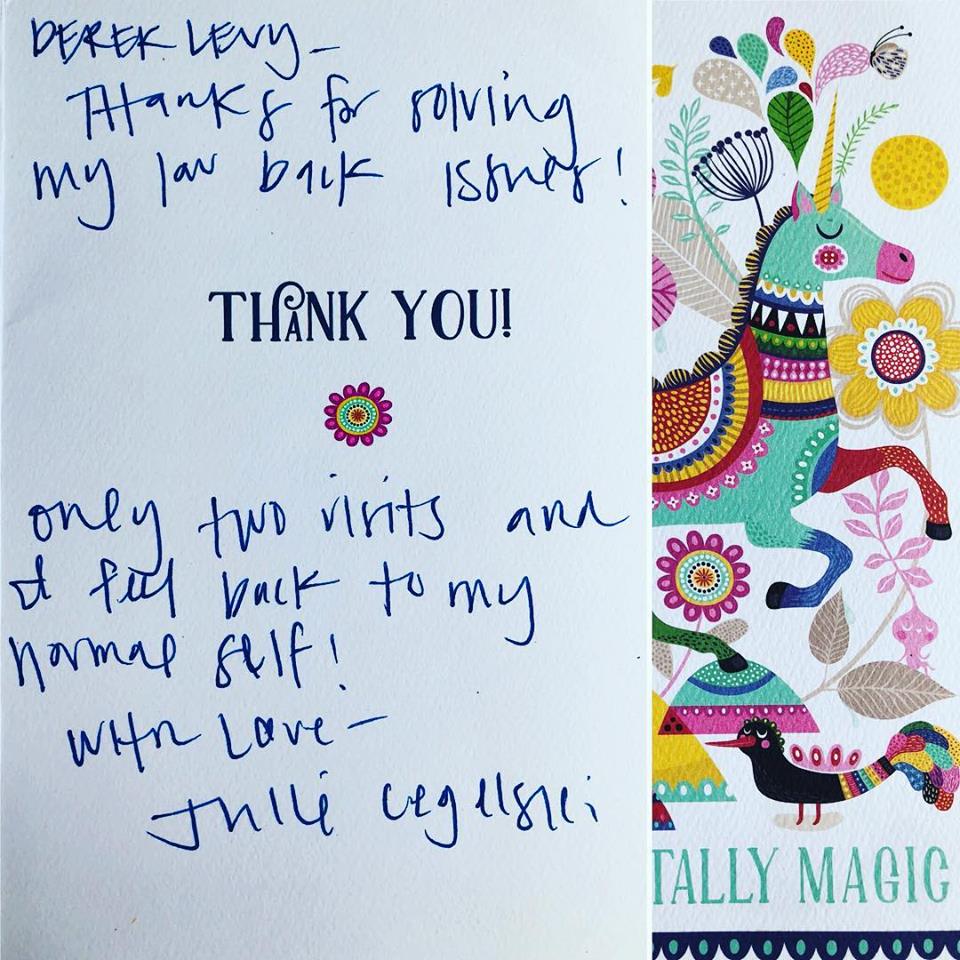 DEREK LEVY -
THanks for solving
my low back issues!
THaNK YOU!
only two visits and
I feel back to my
normal self!
WITH Love -
Julie Cegelski
TALLY MAGIC